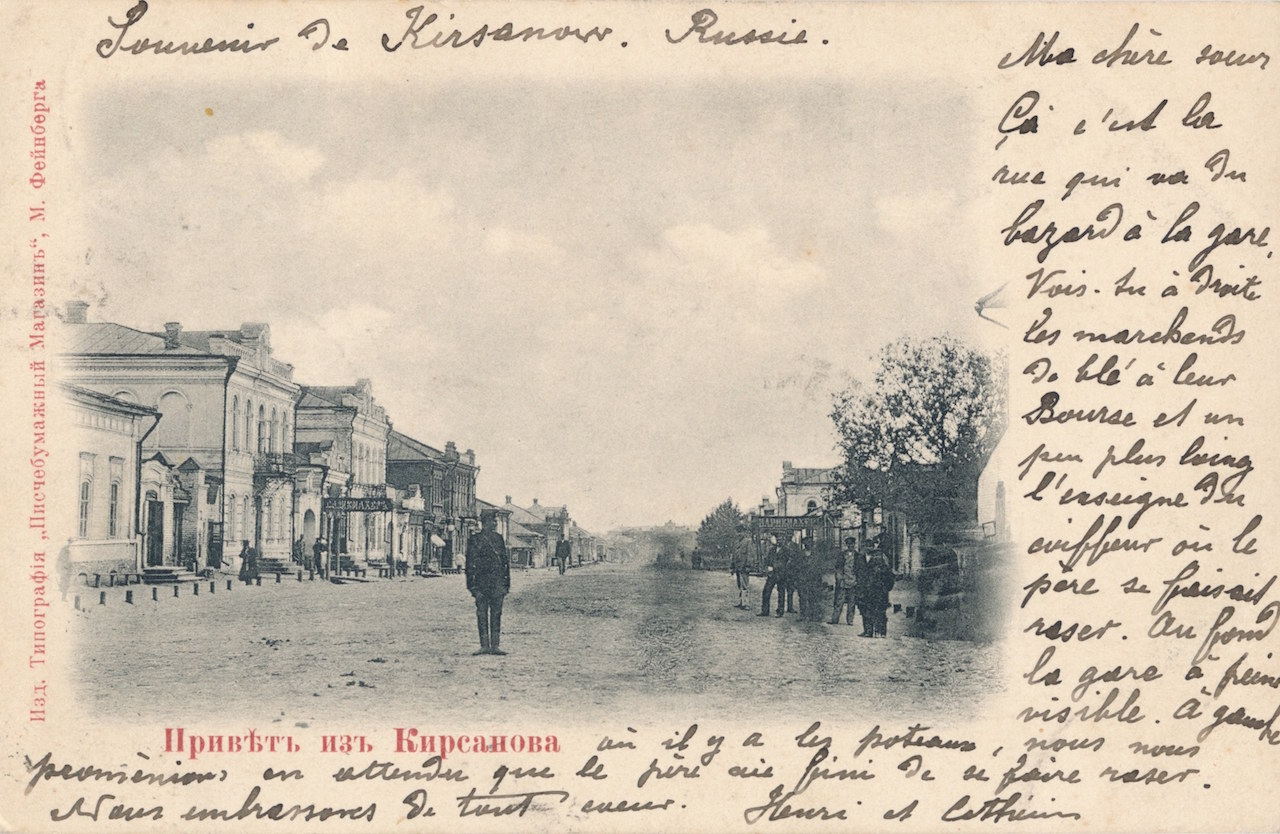 Souvenir de Kirsanow. Russie.
Ma chère soeur
Çà c'est la
rue qui va du
bazard à la gare.
Vois-tu à droite
les marchands
de blé à leur
Bourse et un
peu plus loing
l'enseigne du
coiffeur où le
père se faisait
raser. Au fond
la gare à peine
visible. A gauche
où il y a les poteaux, nous nous
promenions en attendu que le père aie fini de se faire raser.
Nous embrassons de tout coeur. Henri et
Привѣтъ изъ Кирсанова
Изд. Типографія „Писчебумажный Магазинъ“, М. Фейнберга
ПАРИКМАХЕРЪ